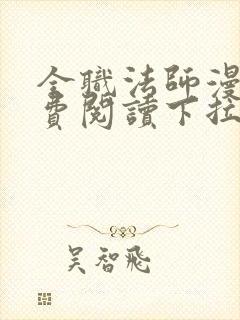 全職法師漫
費閱讀下拉
吳智飛